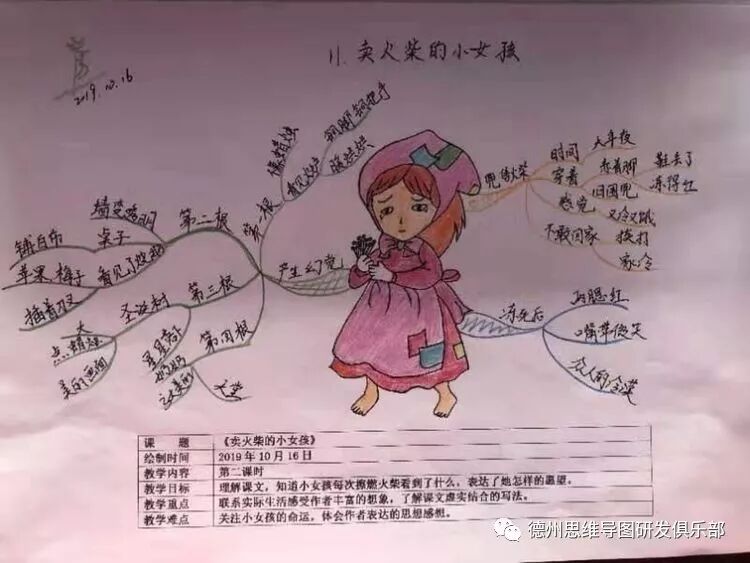 2019.10.16
11.卖火柴的小女孩
产生幻觉
第一根
像蜡烛
看见火炉
铜脚铜把手
暖烘烘
第二根
墙变透明
桌子
铺白布
看见了烧鹅
苹果 梅子
插着刀叉
第三根
圣诞树
大
点蜡烛
美的画面
第四根
星星落下
奶奶
火柴
兜售火柴
时间
大年夜
穿着
赤着脚
鞋丢了
冻得红
旧围兜
感觉
又冷又饿
不敢回家
挨打
家冷
冻死后
两腮红
嘴带微笑
众人的冷漠
课 题 《卖火柴的小女孩》
绘制时间 2019年10月16日
教学内容 第二课时
教学目标 理解课文，知道小女孩每次擦燃火柴看到了什么，表达了她怎样的愿望。
教学重点 联系实际生活感受作者丰富的想象，了解课文虚实结合的写法。
教学难点 关注小女孩的命运，体会作者表达的思想感想。
德州思维导图研发俱乐部